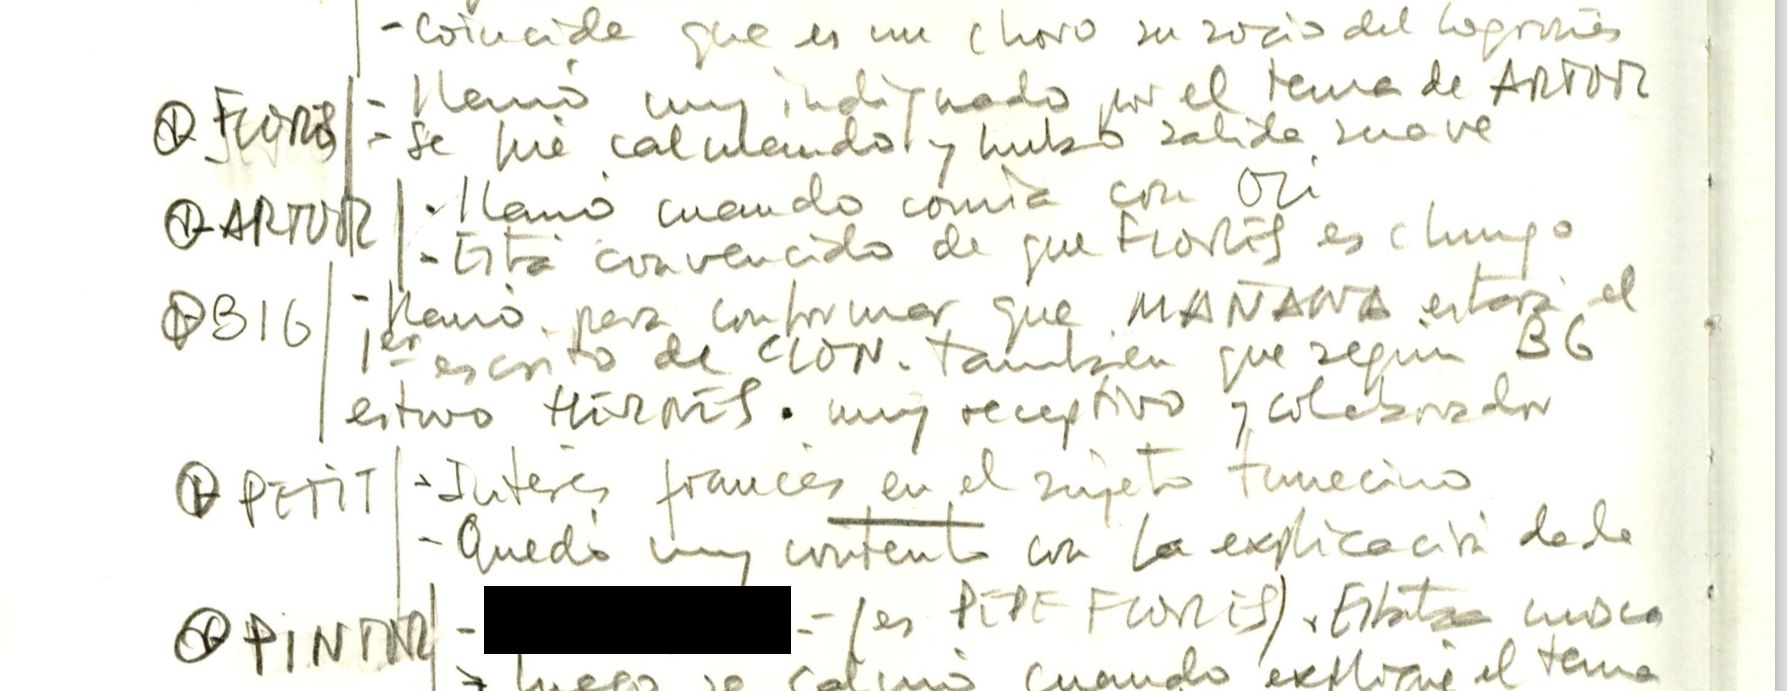 - Coincide que es un choro su socio del Logroñés
FLORES - Llamó muy indignado por el tema de ARTUR
- Se fue calmando y hubo salida suave
ARTUR - Llamó cuando comía con Oli
- Está convencido de que FLORES es chungo
BIG - Llamó para confirmar que MAÑANA estará el
1er escrito de CLON. También que según BG
estuvo HERMES. muy receptivo y colaborador
PETIT - Interés francés en el sujeto tunecino
- Quedó muy contento con la explicación dada
PINTOR - - (es PEPE FLORES). Estaba mosca
luego se calmó cuando expliqué el tema